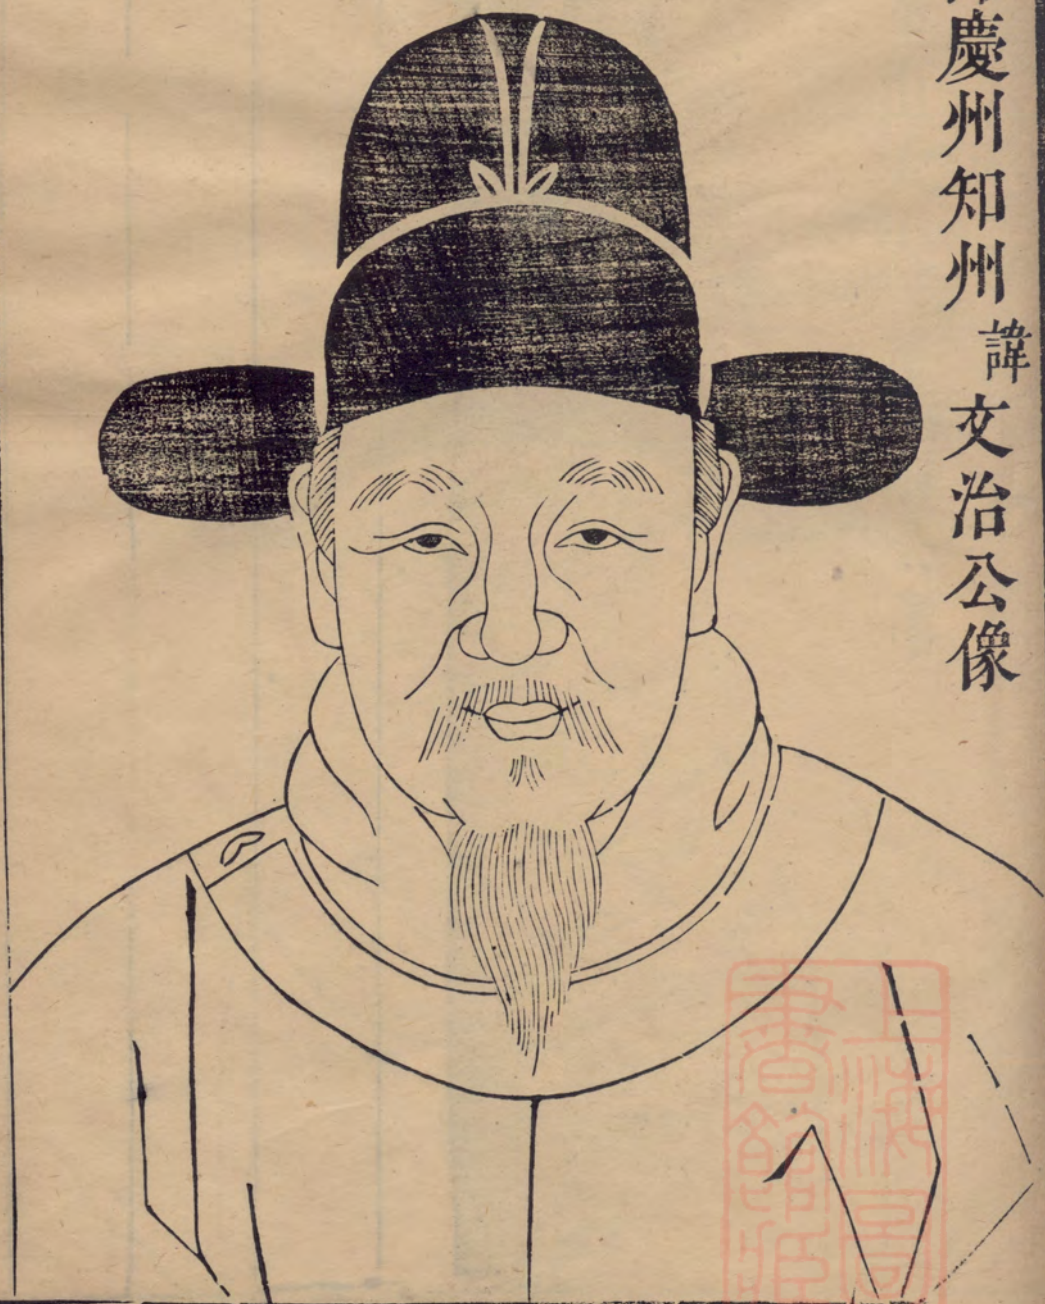 慶州知州諱文治公像
上海圖
書館藏